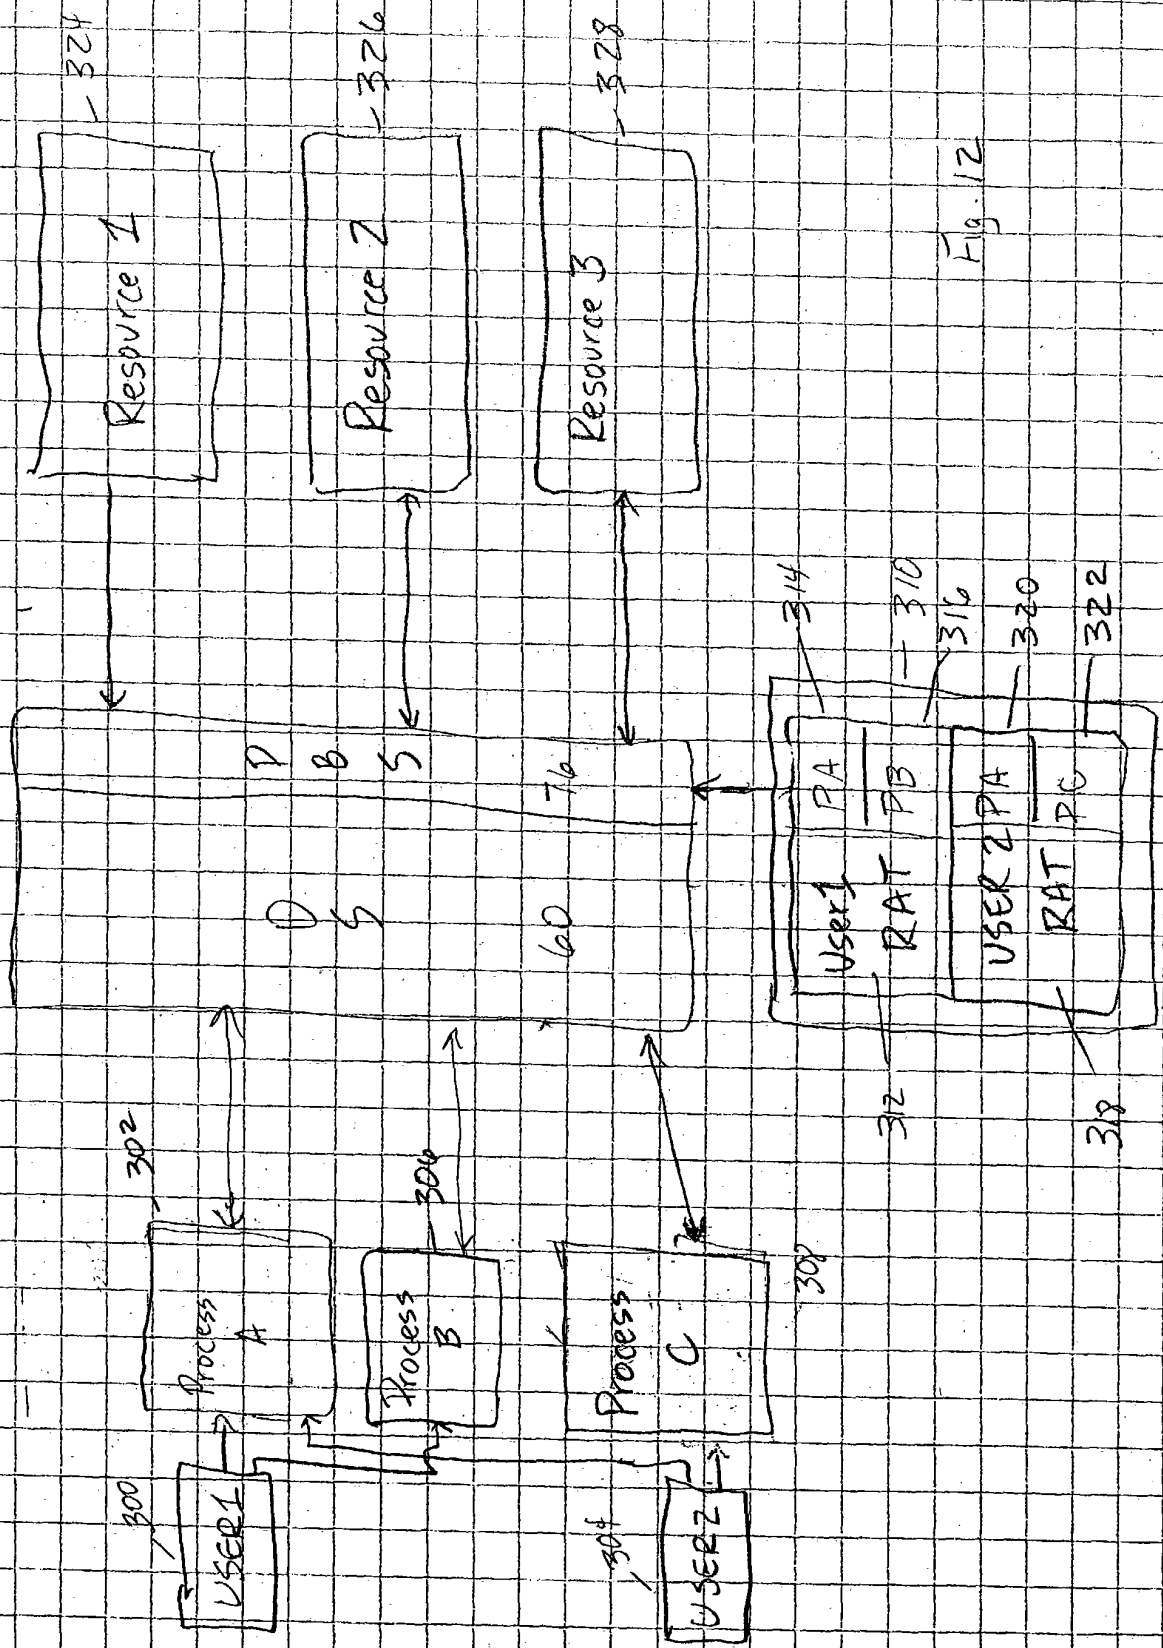 300
USER1
304
USER2
Process
A
302
Process
B
306
Process
C
308
D
S
60
D
B
S
76
Resource 1
324
Resource 2
326
Resource 3
328
User1
RAT
PA
PB
USER 2
RAT
PA
PC
312
318
314
310
316
320
322
Fig. 12